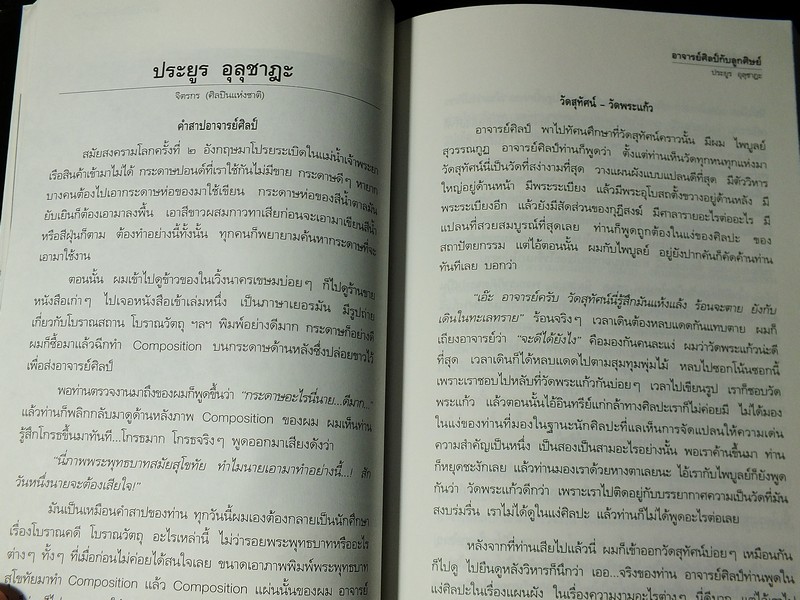 ประยูร อุลุชาฎะ
จิตรกร (ศิลปินแห่งชาติ)
คำสาปอาจารย์ศิลป์
สมัยสงครามโลกครั้งที่ ๒ อังกฤษมาโปรยระเบิดในแม่น้ำเจ้าพระยา
เรือสินค้าเข้ามาไม่ได้ กระดาษปอนด์ที่เราใช้กันไม่มีขาย กระดาษดีๆ หายาก
บางคนต้องไปเอากระดาษห่อของมาใช้เขียน กระดาษห่อของสีน้ำตาลมัน
ยับเยินก็ต้องเอามาลงพื้น เอาสีขาวผสมกาวทาเสียก่อนจะเอามาเขียนสีน้ำ
หรือสีฝุ่นก็ตาม ต้องทำอย่างนี้ทั้งนั้น ทุกคนก็พยายามค้นหากระดาษที่จะ
เอามาใช้งาน
ตอนนั้น ผมเข้าไปดูข้าวของในเวิ้งนาครเขษมบ่อยๆ ก็ไปดูร้านขาย
หนังสือเก่าๆ ไปเจอหนังสือเข้าเล่มหนึ่ง เป็นภาษาเยอรมัน มีรูปถ่าย
เกี่ยวกับโบราณสถาน โบราณวัตถุ ฯลฯ พิมพ์อย่างดีมาก กระดาษก็อย่างดี
ผมก็ซื้อมาแล้วฉีกทำ Composition บนกระดาษด้านหลังซึ่งปล่อยขาวไว้
เพื่อส่งอาจารย์ศิลป์
พอท่านตรวจงานมาถึงของผมก็พูดขึ้นว่า "กระดาษอะไรนี่นาย...ดีมาก..."
แล้วท่านก็พลิกกลับมาดูด้านหลังภาพ Composition ของผม ผมเห็นท่าน
รู้สึกโกรธขึ้นมาทันที...โกรธมาก โกรธจริงๆ พูดออกมาเสียงดังว่า
"นี่ภาพพระพุทธบาทสมัยสุโขทัย ทำไมนายเอามาทำอย่างนี้...! สัก
วันหนึ่งนายจะต้องเสียใจ!"
มันเป็นเหมือนคำสาปของท่าน ทุกวันนี้ผมเองต้องกลายเป็นนักศึกษา
เรื่องโบราณคดี โบราณวัตถุ อะไรเหล่านี้ ไม่ว่ารอยพระพุทธบาทหรืออะไร
ต่างๆ ทั้งๆ ที่เมื่อก่อนไม่ค่อยได้สนใจเลย ขนาดเอาภาพพิมพ์พระพุทธบาท
สุโขทัยมาทำ Composition แล้ว Composition แผ่นนั้นของผม อาจารย์
อาจารย์ศิลป์กับลูกศิษย์
ประยูร อุลุชาฎะ
วัดสุทัศน์ - วัดพระแก้ว
อาจารย์ศิลป์ พาไปทัศนศึกษาที่วัดสุทัศน์คราวนั้น มีผม ไพบูลย์
สุวรรณกูฏ อาจารย์ศิลป์ท่านก็พูดว่า ตั้งแต่ท่านเห็นวัดทุกหนทุกแห่งมา
วัดสุทัศน์นี่เป็นวัดที่สง่างามที่สุด วางแผนผังแบบแปลนดีที่สุด มีตัววิหาร
ใหญ่อยู่ด้านหน้า มีพระระเบียง แล้วมีพระอุโบสถตั้งขวางอยู่ด้านหลัง มี
พระระเบียงอีก แล้วยังมีสัดส่วนของกุฏิสงฆ์ มีศาลารายอะไรต่ออะไร มี
แปลนที่สวยสมบูรณ์ที่สุดเลย ท่านก็พูดถูกต้องในแง่ของศิลปะ ของ
สถาปัตยกรรม แต่ไอ้ตอนนั้น ผมกับไพบูลย์ อยู่ยังปากคันก็คัดค้านท่าน
ทันทีเลย บอกว่า
"เอ๊ะ อาจารย์ครับ วัดสุทัศน์นี่รู้สึกมันแห้งแล้ง ร้อนจะตาย ยังกับ
เดินในทะเลทราย" ร้อนจริงๆ เวลาเดินต้องหลบแดดกันแทบตาย ผมก็
เถียงอาจารย์ว่า "จะดีได้ยังไง" คือมองกันคนละแง่ ผมว่าวัดพระแก้วน่ะดี
ที่สุด เวลาเดินก็ได้หลบแดดไปตามสุมทุมพุ่มไม้ หลบไปซอกโน้นซอกนี้
เพราะเราชอบไปหลับที่วัดพระแก้วกันบ่อยๆ เวลาไปเขียนรูป เราก็ชอบวัด
พระแก้ว แล้วตอนนั้นไอ้อินทรีย์แก่กล้าทางศิลปะเราก็ไม่ค่อยมี ไม่ได้มอง
ในแง่ของท่านที่มองในฐานะนักศิลปะที่แลเห็นการจัดแปลนให้ความเด่น
ความสำคัญเป็นหนึ่ง เป็นสองเป็นสามอะไรอย่างนั้น พอเราค้านขึ้นมา ท่าน
ก็หยุดชะงักเลย แล้วท่านมองเราด้วยหางตาเลยนะ ไอ้เรากับไพบูลย์ก็ยังพูด
กันว่า วัดพระแก้วดีกว่า เพราะเราไปติดอยู่กับบรรยากาศความเป็นวัดที่มัน
สงบร่มรื่น เราไม่ได้ดูในแง่ศิลปะ แล้วท่านก็ไม่ได้พูดอะไรต่อเลย
หลังจากที่ท่านเสียไปแล้วนี่ ผมก็เข้าออกวัดสุทัศน์บ่อยๆ เหมือนกัน
ก็ไปดู ไปยืนดูหลังวิหารก็นึกว่า เออ...จริงของท่าน อาจารย์ศิลป์ท่านพูดใน
แง่ศิลปะในเรื่องแผนผัง ในเรื่องความงามอะไรต่างๆ